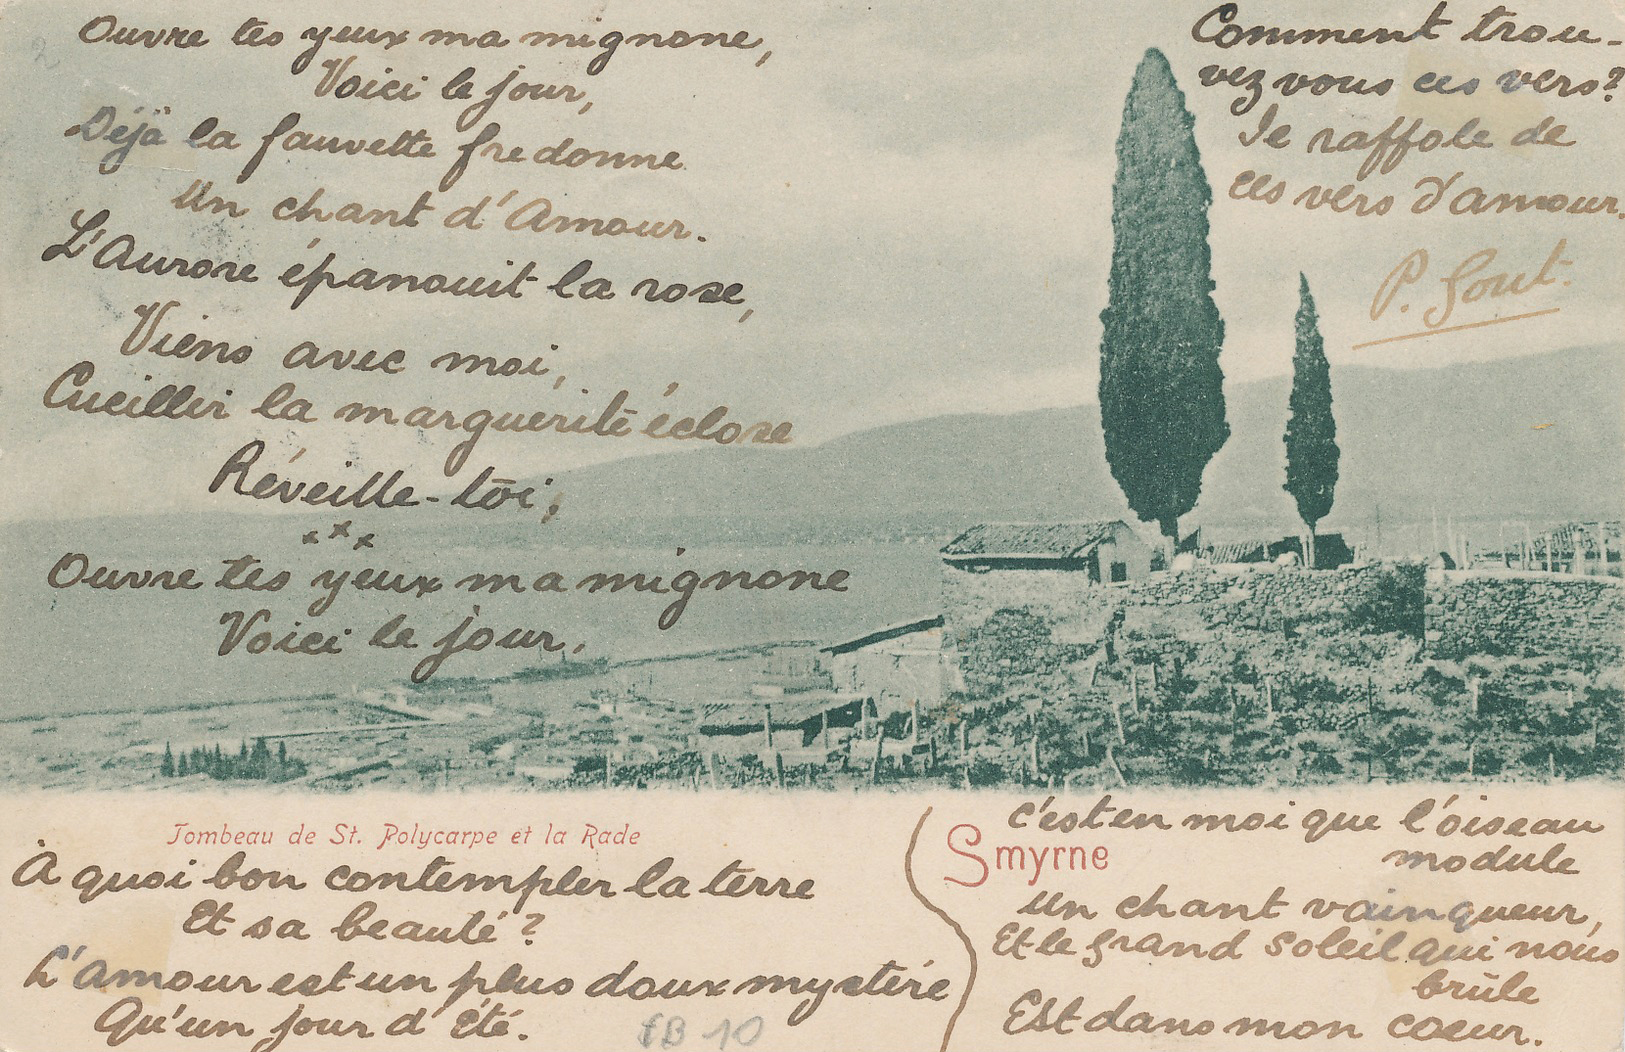 Ouvre tes yeux ma mignone,
Voici le jour,
Déjà la fauvette fredonne
Un chant d'Amour.
L'Aurore épanouit la rose,
Viens avec moi,
Cueillir la marguerite éclose
Réveille-toi;
x x x
Ouvre tes yeux ma mignone
Voici le jour.
Comment trou-
vez vous ces vers?
Je raffole de
ces vers d'amour.
P. Gout.
Tombeau de St. Polycarpe et la Rade
Smyrne
À quoi bon contempler la terre
Et sa beauté?
L'amour est un plus doux mystère
Qu'un jour d'Été.
C'est en moi que l'oiseau
module
Un chant vainqueur,
Et le grand soleil qui nous
brûle
Est dans mon coeur.
10